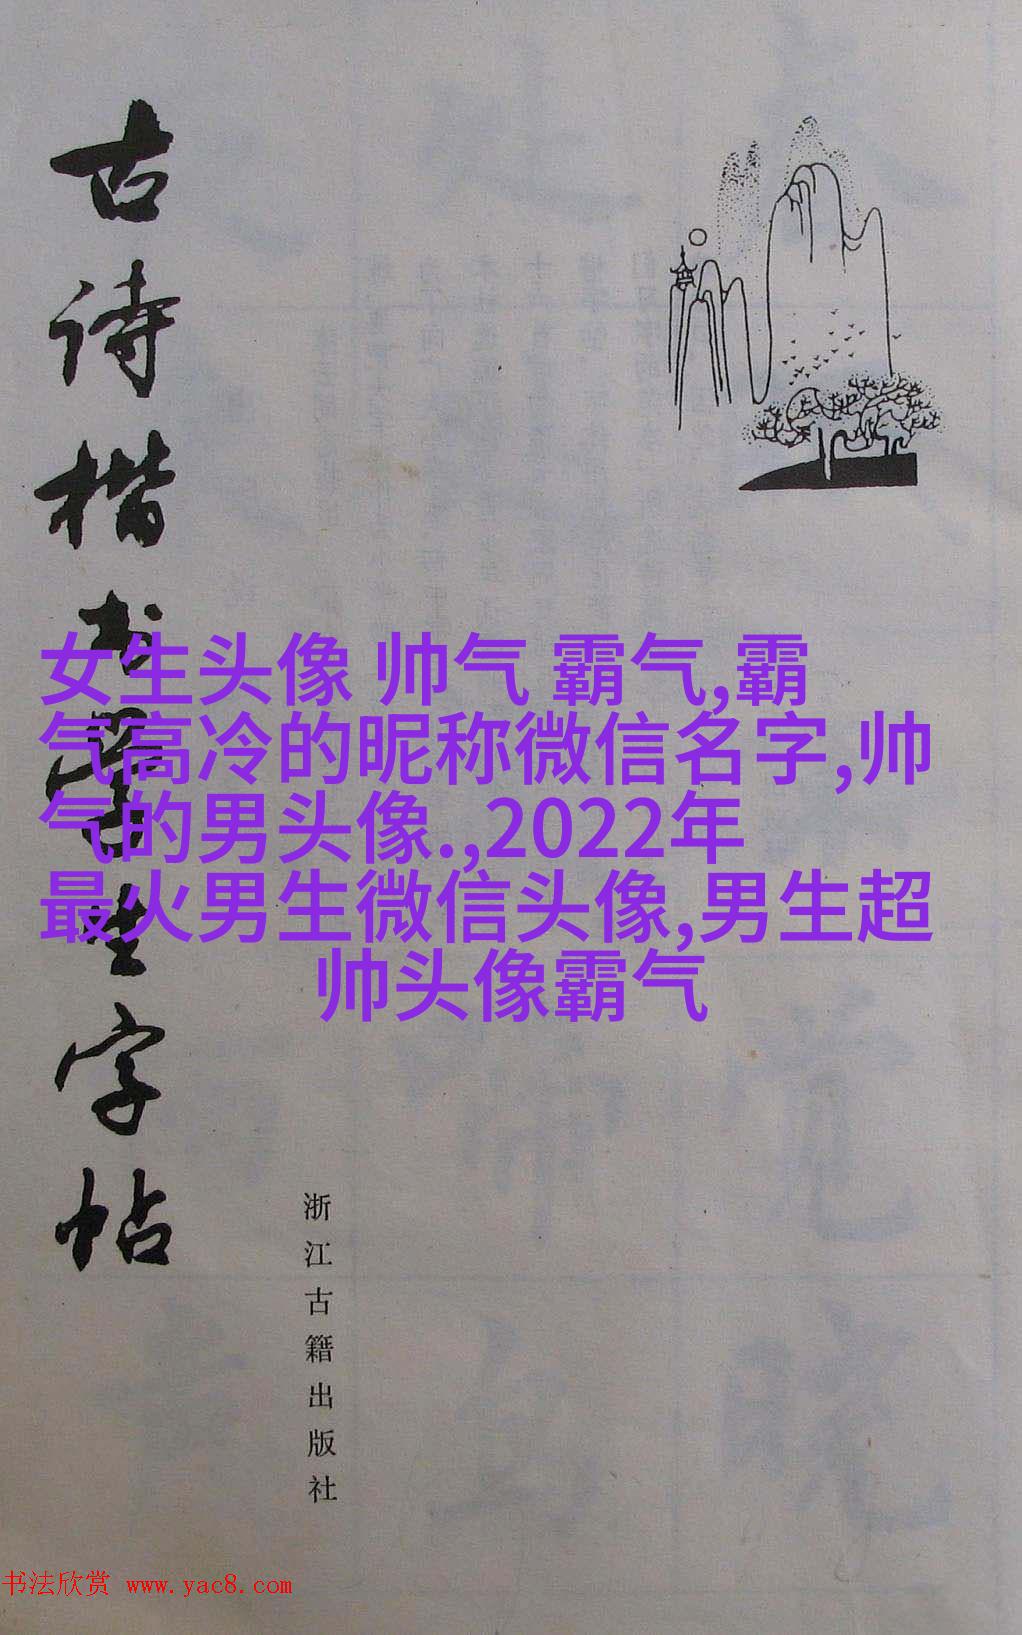 古诗楷书學生字帖
女生头像 帅气 霸气,霸
气高冷的昵称微信名字,帅
气的男头像.,2022年
最火男生微信头像,男生超
帅头像霸气
浙江古籍出版社
书法欣赏 www.yac8.com